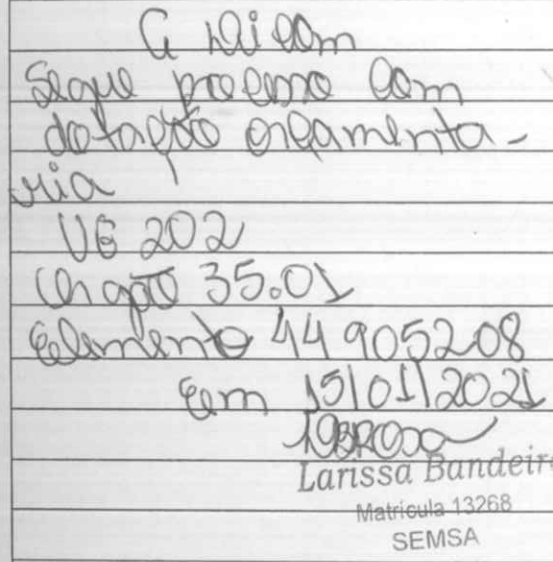 Segue processo com
dotação orçamenta-
ria
UG 202
Orgão 35.01
Elemento 44 905208
Em 15/01/2021
Larissa Bandeira
Matrícula 13268
SEMSA